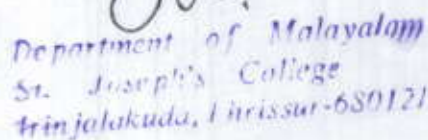 Department of Malayalam
St. Joseph's College
Irinjalakuda, Thrissur-680121